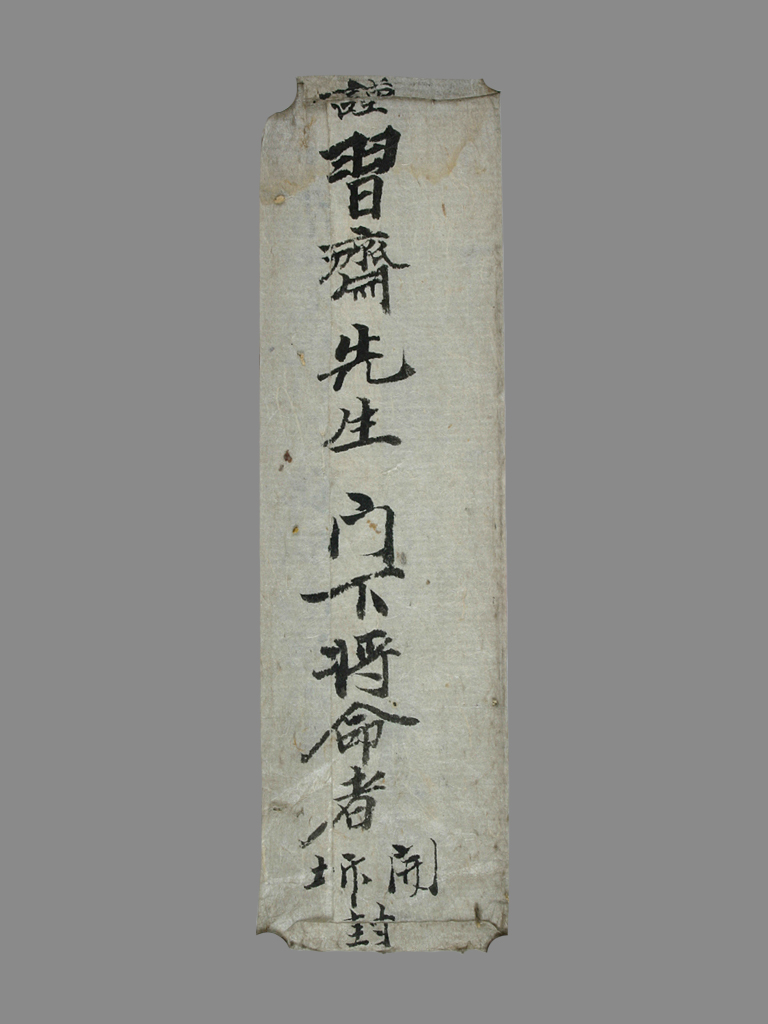 謹
習齋先生 門下將命者
開
坼
封